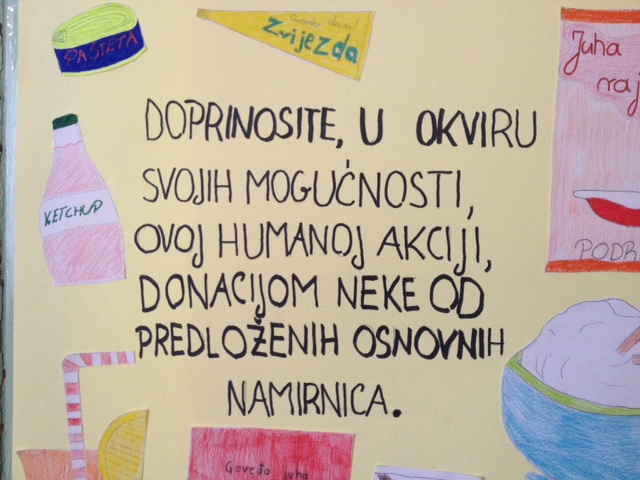 PAŠTETA
Zvijezda
Juha
raj
KETCHUP
DOPRINOSITE, U OKVIRU
SVOJIH MOGUĆNOSTI,
OVOJ HUMANOJ AKCIJI,
DONACIJOM NEKE OD
PREDLOŽENIH OSNOVNIH
NAMIRNICA.
PODR
Goveđa juha